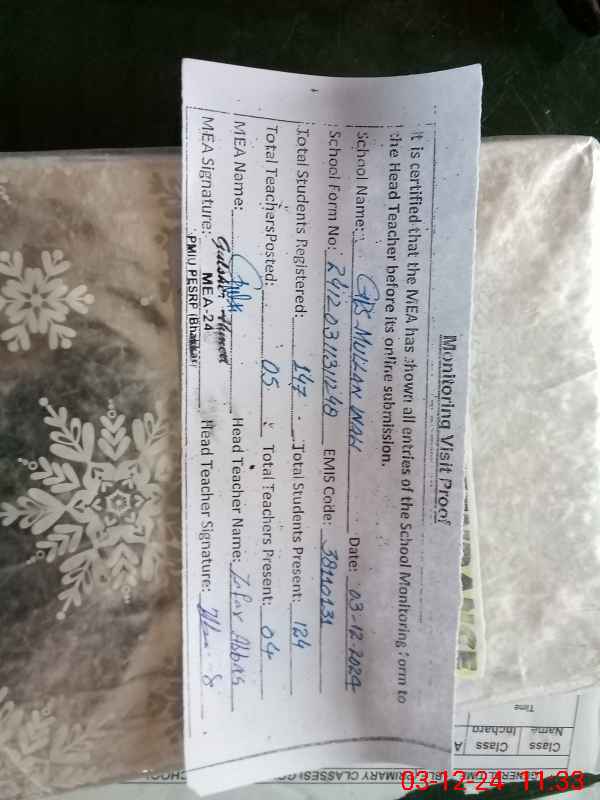 Monitoring Visit Proof
It is certified that the MEA has shown all entries of the School Monitoring Form to
the Head Teacher before its online submission.
School Name: GPS MULKAN WALI Date: 03-12-2024
School Form No: EMIS Code: 38110131
Total Students Registered: 147 Total Students Present: 124
Total TeachersPosted: 05 Total Teachers Present: 04
MEA Name: Head Teacher Name: Zafar Abbas
MEA Signature: Head Teacher Signature:
MEA-24
PMIU PESRP (Bhakkar)
Class
Name Incharg
Time
Class
PRIMARY CLASSES
03-12-24 11:33